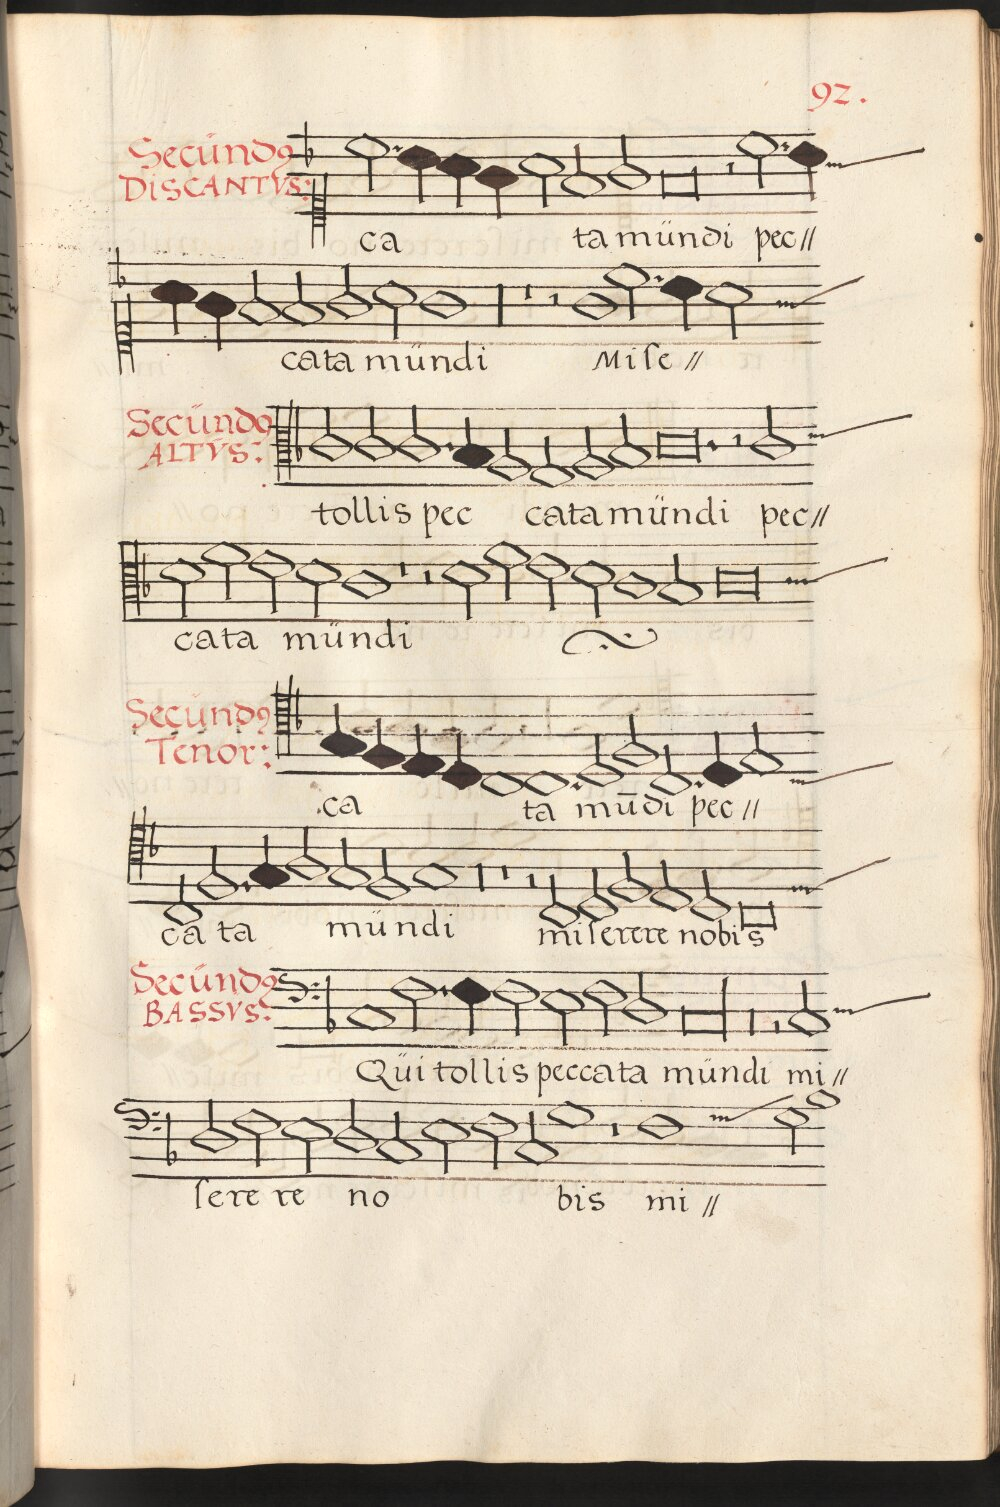 92.
Secündꝰ
DISCANTVS:
ca ta mündi pec//
cata mündi Miſe //
Secündꝰ
ALTVS:
tollis pec cata mündi pec//
cata mündi
Secündꝰ
Tenor:
ca ta mūdi pec //
ca ta mündi miſerere nobis
Secündꝰ
BASSVS:
Qüi tollis peccata mündi mi//
ſere re no bis mi //